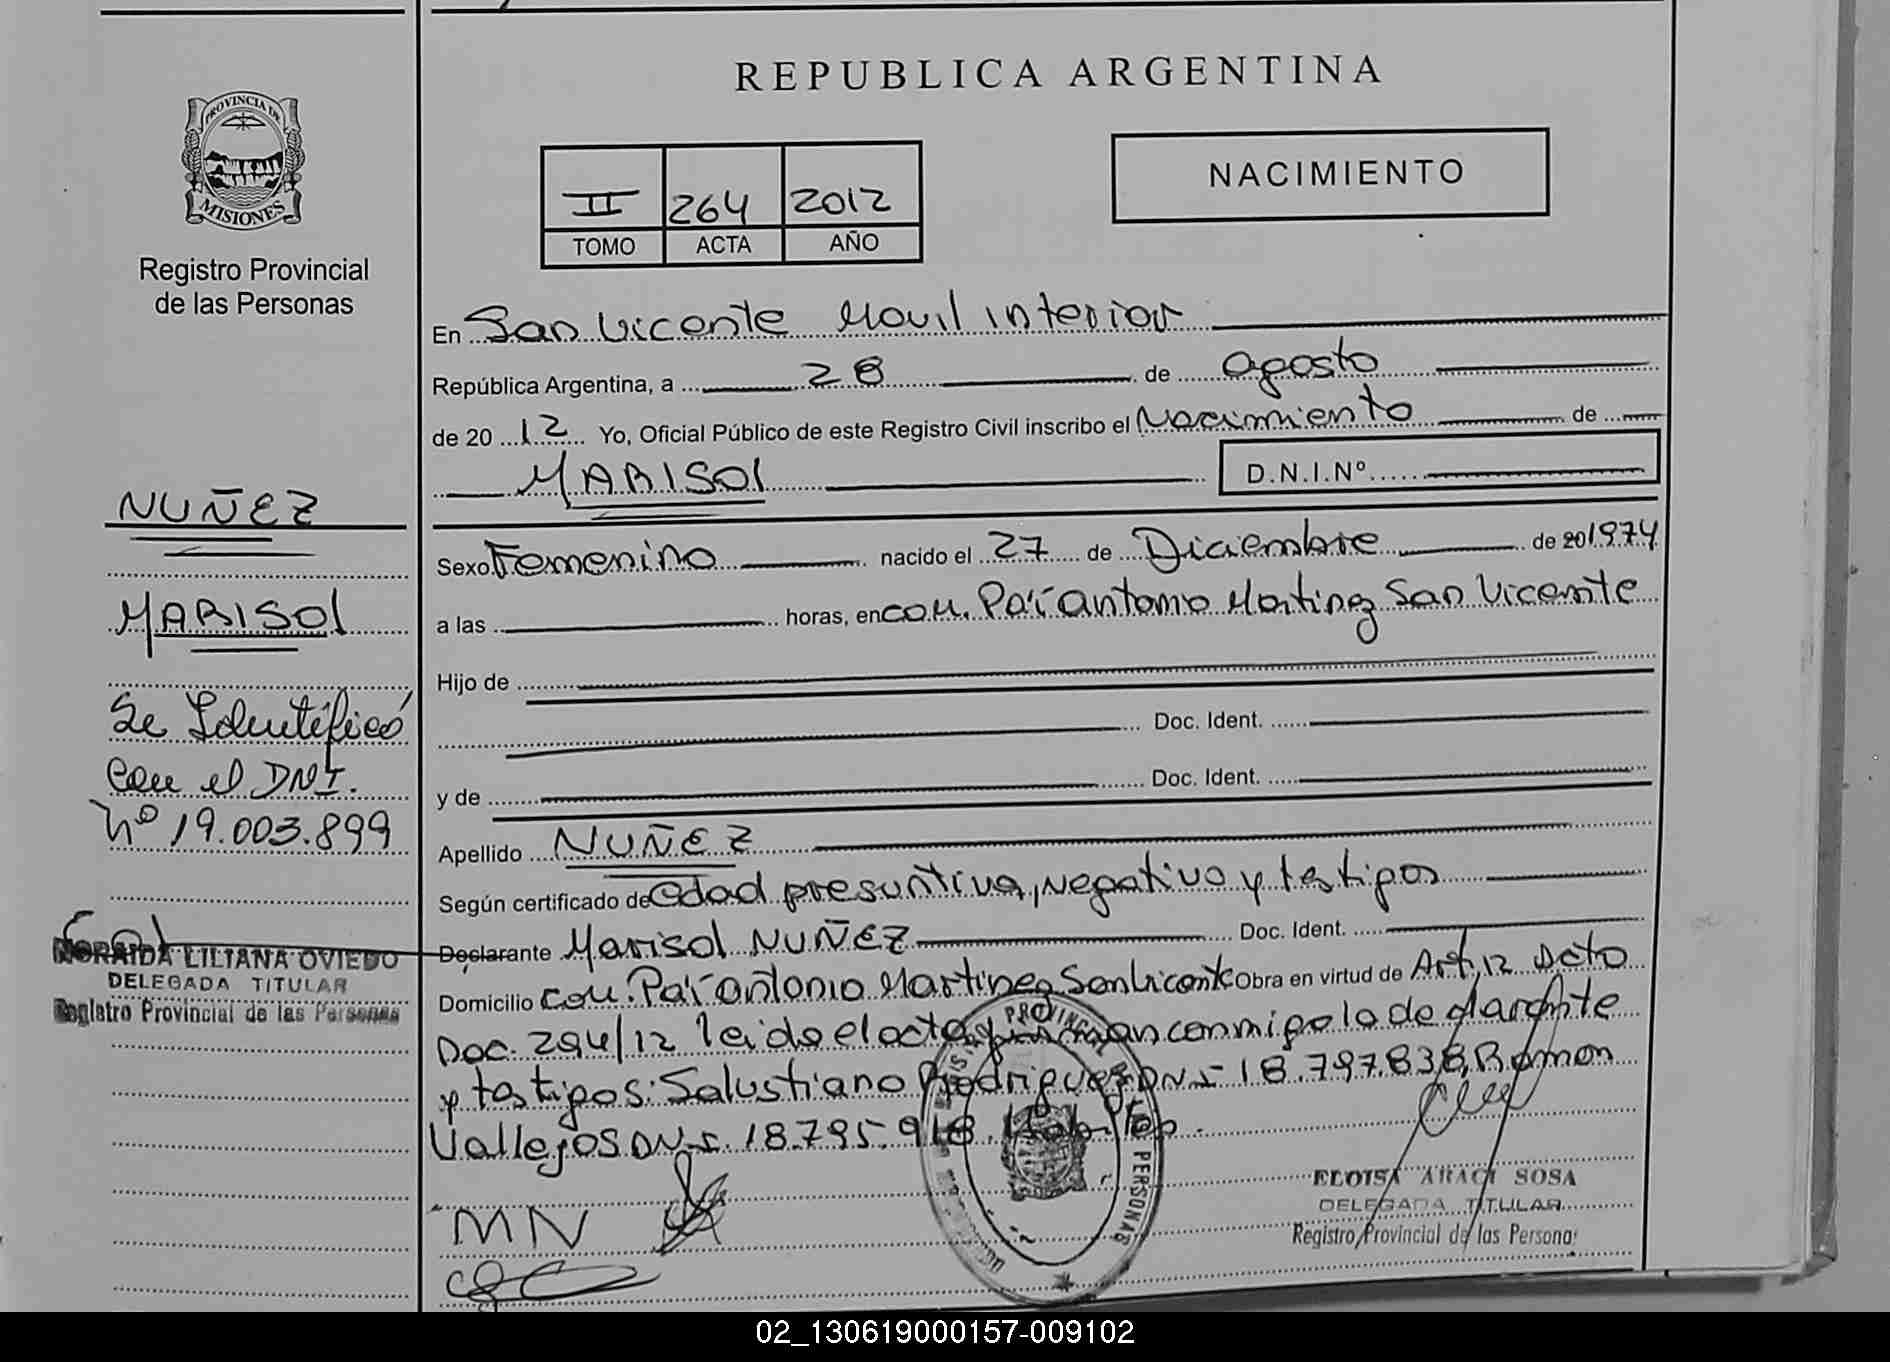 REPUBLICA ARGENTINA
PROVINCIA DE
MISIONES
Registro Provincial
de las Personas
II 264 2012
TOMO ACTA AÑO
NACIMIENTO
En San Vicente Movil interior
República Argentina, a 28 de agosto
de 20 12 Yo, Oficial Público de este Registro Civil inscribo el Nacimiento de
MARISOL D.N.I.Nº
NUÑEZ
MARISOL
Se Identificó
con el DNI.
Nº 19.003.899
NORAIDA LILIANA OVIEDO
DELEGADA TITULAR
Registro Provincial de las Personas
Sexo Femenino nacido el 27 de Diciembre de 20 1974
a las horas, en com. Pai antonio Martinez San Vicente
Hijo de
Doc. Ident.
y de Doc. Ident.
Apellido NUÑEZ
Según certificado de edad presuntiva, negativo y testigos
Declarante Marisol NUÑEZ Doc. Ident.
Domicilio com. Pai antonio Martinez San Vicente Obra en virtud de Art. 12 Dcto
Doc. 294/12 leido el acta firman conmigo la declarante
y testigos: Salustiano Rodriguez DNI 18.797.838, Ramon
Vallejos DNI. 18.795.918.
MN
PROVINCIAL PERSONAS
ELOISA ARACI SOSA
DELEGADA TITULAR
Registro Provincial de las Personas
02_130619000157-009102